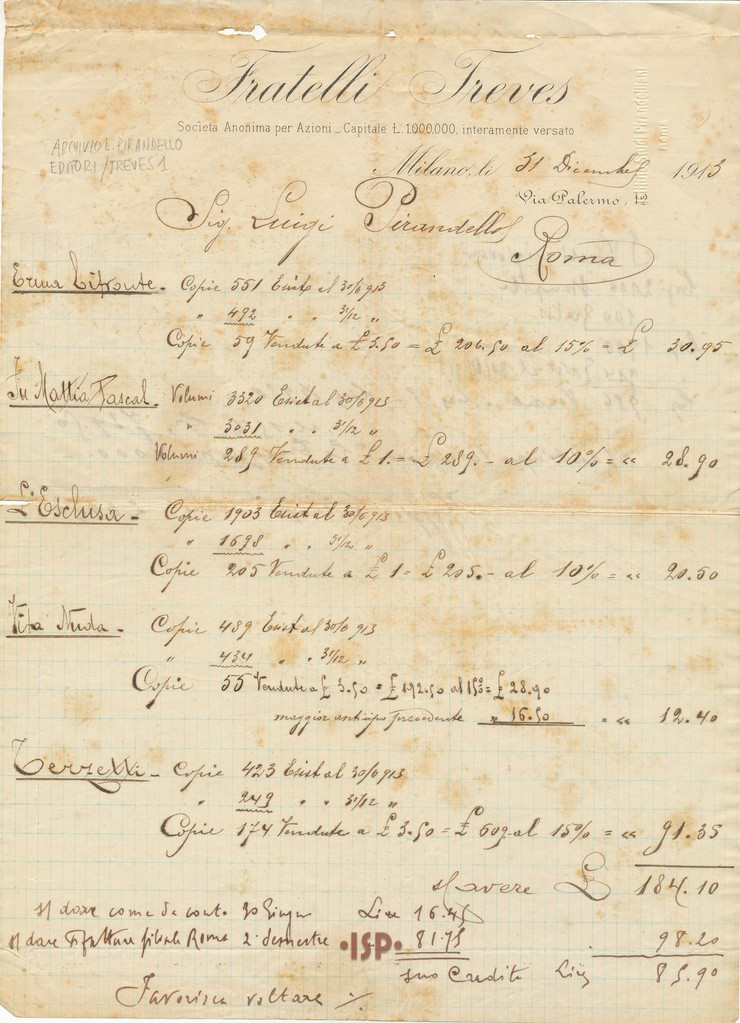 Fratelli Treves
Società Anonima per Azioni _ Capitale Ł. 1.000.000. interamente versato
ARCHIVIO L. PIRANDELLO
EDITORI / TREVES 1
Milano, li 31 Dicembre 1913
Via Palermo, 12
Sig. Luigi Pirandello
Roma
Erma Bifronte - Copie 551 Esist al 30/6 913
" 492 " 31/12 "
Copie 59 Vendute a £ 3.50 = £ 206.50 al 15% = £ 30.95
Fu Mattia Pascal. Volumi 3320 Esist al 30/6 913
" 3031 " " 31/12 "
Volumi 289 Vendute a £ 1. = £ 289. - al 10% = " 28.90
L'Esclusa - Copie 1903 Esist al 30/6 913
" 1698 " " 31/12 "
Copie 205 Vendute a £ 1 = £ 205. - al 10% = " 20.50
Vita Nuda - Copie 489 Esist al 30/6 913
" 434 " " 31/12 "
Copie 55 Vendute a £ 3.50 = £ 192.50 al 15% = £ 28.90
maggior anticipo precedente " 16.50 = " 12.40
Terzetti - Copie 423 Esist al 30/6 913
" 249 " " 31/12 "
Copie 174 Vendute a £ 3.50 = £ 609. al 15% = " 91.35
s/ avere £ 184.10
s/ dare come da conto 30 Giugno Lire 16.45
s/ dare fatture filiale Roma 2° semestre 81.75 98.20
•ISP•
suo Credito Lire 85.90
Favorisca voltare ./.